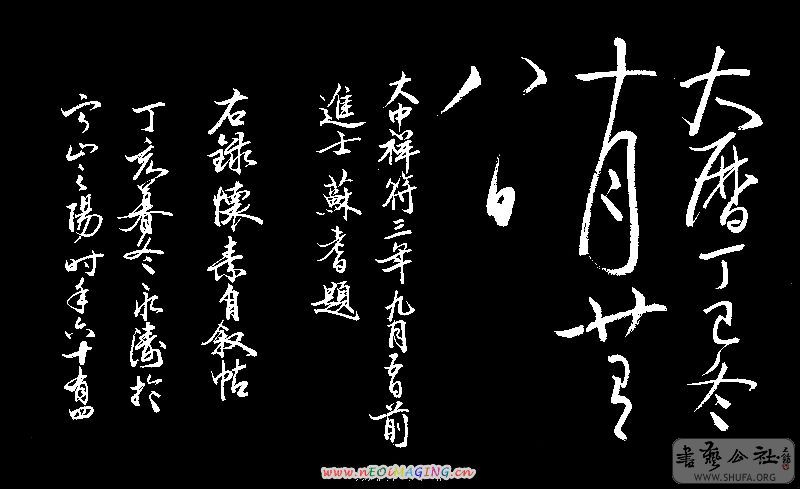 大曆丁巳冬
十月廿有
八日
大中祥符三年九月五日前
進士蘇耆題
右錄懷素自叙帖
丁亥暮冬永濤於
山之陽时年六十有四
www.nEOiMAGiNG.cn
書藝公社
WWW.SHUFA.ORG